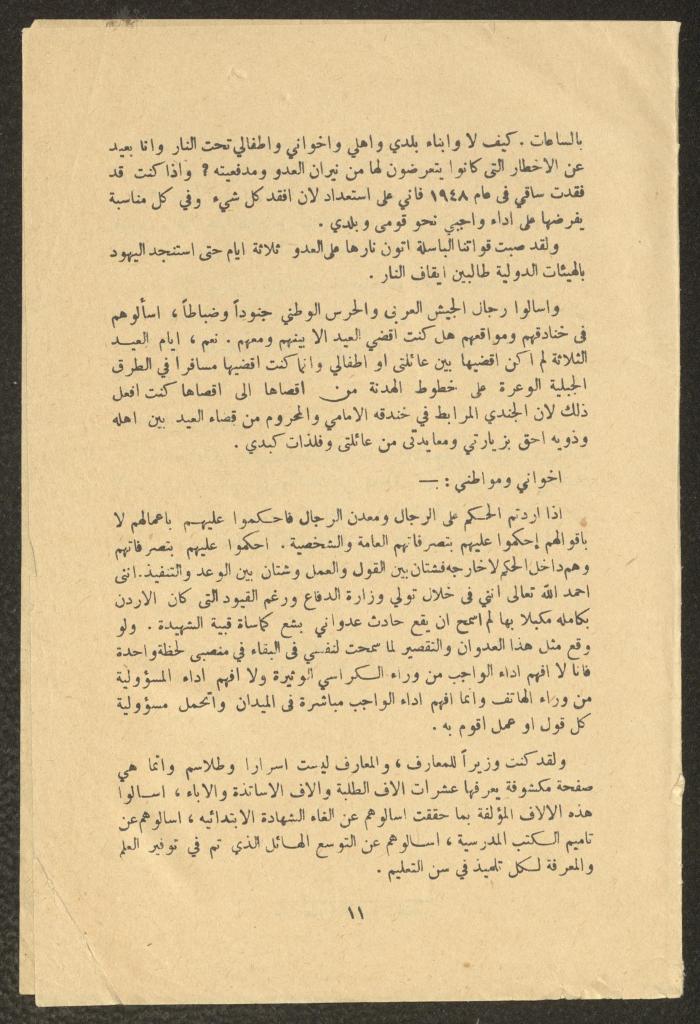 بالساعات . كيف لا وابناء بلدي واهلي واخواني واطفالي تحت النار وانا بعيد
عن الاخطار التى كانوا يتعرضون لها من نيران العدو ومدفعيته ? واذا كنت قد
فقدت ساقي فى عام ١٩٤٨ فاني على استعداد لان افقد كل شيء وفي كل مناسبة
يفرضها على اداء واجبي نحو قومى وبلدي .
ولقد صبت قواتنا الباسلة اتون نارها على العدو ثلاثة ايام حتى استنجد اليهود
بالهيئات الدولية طالبين ايقاف النار .
واسالوا رجال الجيش العربى والحرس الوطني جنوداً وضباطاً ، اسألوهم
فى خنادقهم ومواقعهم هل كنت اقضي العيد الا بينهم ومعهم . نعم ، ايام العيد
الثلاثة لم اكن اقضيها بين عائلتى او اطفالي وانما كنت اقضيها مسافرا في الطرق
الجبلية الوعرة على خطوط الهدنة من اقصاها الى اقصاها كنت افعل
ذلك لان الجندي المرابط في خندقه الامامي والمحروم من قضاء العيد بين اهله
وذويه احق بزيارتي ومعايدتى من عائلتى وفلذات كبدي .
اخواني ومواطني : —
اذا اردتم الحكم على الرجال ومعدن الرجال فاحكموا عليهم باعمالهم لا
باقوالهم إحكموا عليهم بتصرفاتهم العامة والشخصية . احكموا عليهم بتصرفاتهم
وهم داخل الحكم لاخارجه فشتان بين القول والعمل وشتان بين الوعد والتنفيذ. اننى
احمد الله تعالى انني فى خلال تولي وزارة الدفاع ورغم القيود التى كان الاردن
بكامله مكبلا بها لم اسمح ان يقع حادث عدواني بشع كماساة قبية الشهيدة . ولو
وقع مثل هذا العدوان والتقصير لما سمحت لنفسي فى البقاء في منصبى لحظة واحدة
فانا لا افهم اداء الواجب من وراء الكراسي الوثيرة ولا افهم اداء المسؤولية
من وراء الهاتف وانما افهم اداء الواجب مباشرة فى الميدان واتحمل مسؤولية
كل قول او عمل اقوم به .
ولقد كنت وزيراً للمعارف ، والمعارف ليست اسرارا وطلاسم وانما هي
صفحة مكشوفة يعرفها عشرات الاف الطلبة والاف الاساتذة والاباء ، اسالوا
هذه الالاف المؤلفة بما حققت اسالوهم عن الغاء الشهادة الابتدائيه ، اسالوهم عن
تاميم الكتب المدرسية ، اسالوهم عن التوسع الهائل الذي تم في توفير العلم
والمعرفة لكل تلميذ في سن التعليم .
١١